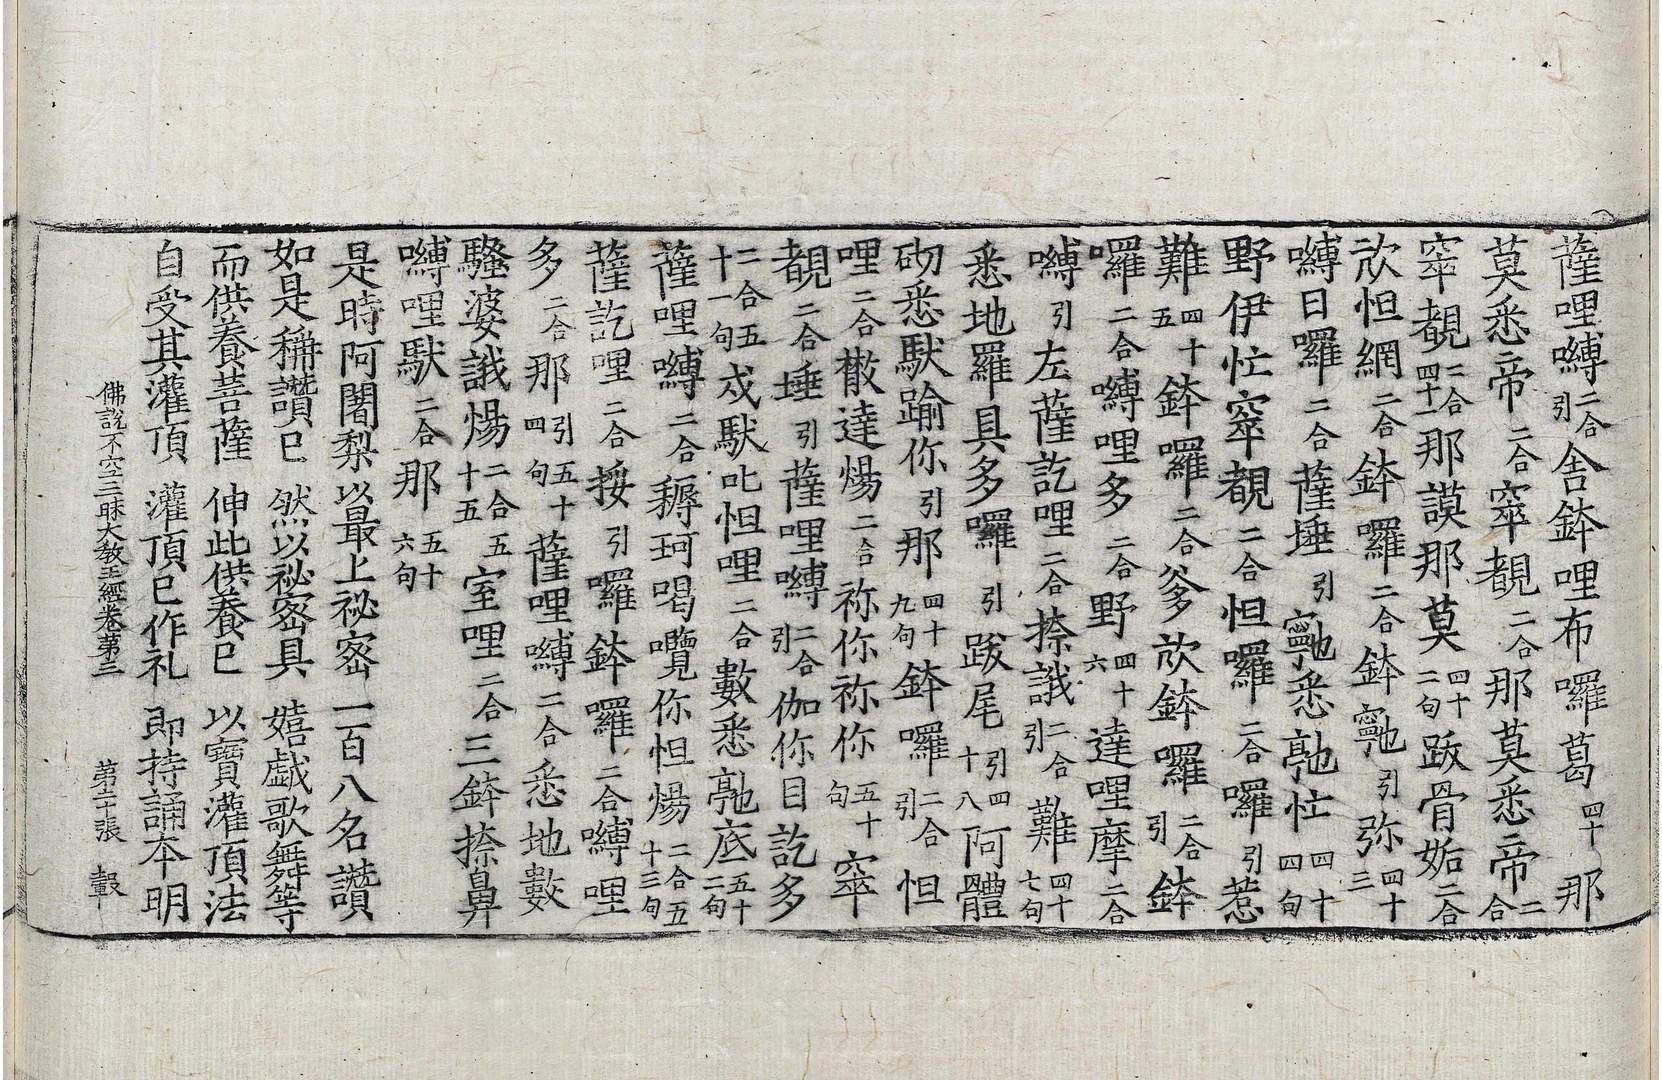 薩哩嚩二合引舍鉢哩布囉葛四十那
莫悉帝二合窣覩二合那莫悉帝二合
窣覩二合四十一那謨那莫四十二句跋骨姤二合
欤怛網二合鉢囉二合鉢𩕳引弥四十三
嚩日囉二合薩埵引𩕳悉𠆙忙四十四句
野伊忙窣覩二合怛囉二合囉引惹
難四十五鉢囉二合爹欤鉢囉二合引鉢
囉二合嚩哩多二合野四十六達哩摩二合
嚩引左薩訖哩二合捺誐二合引難四十七句
悉地羅具多囉引跋尾引四十八阿體
砌悉馱踰你引那四十九句鉢囉二合引怛
哩二合橵達煬二合祢你祢你五十句窣
覩二合埵引薩哩嚩二合引伽你目訖多
二合五十一句戍馱叱怛哩二合數悉𠆙底五十二句
薩哩嚩二合耨珂喝囕你怛煬二合五十三句
薩訖哩二合挼引囉鉢囉二合嚩哩
多二合那引五十四句薩哩嚩二合悉地數
騷婆誐煬二合五十五室哩二合三鉢捺鼻
嚩哩馱二合那五十六句
是時阿闍梨以最上祕密一百八名讚
如是稱讚巳 然以祕密具 嬉戯歌舞等
而供養菩薩 伸此供養巳 以寶灌頂法
自受其灌頂 灌頂巳作礼 即持誦本明
佛說不空三昧大教王經卷第三 第二十張 轂